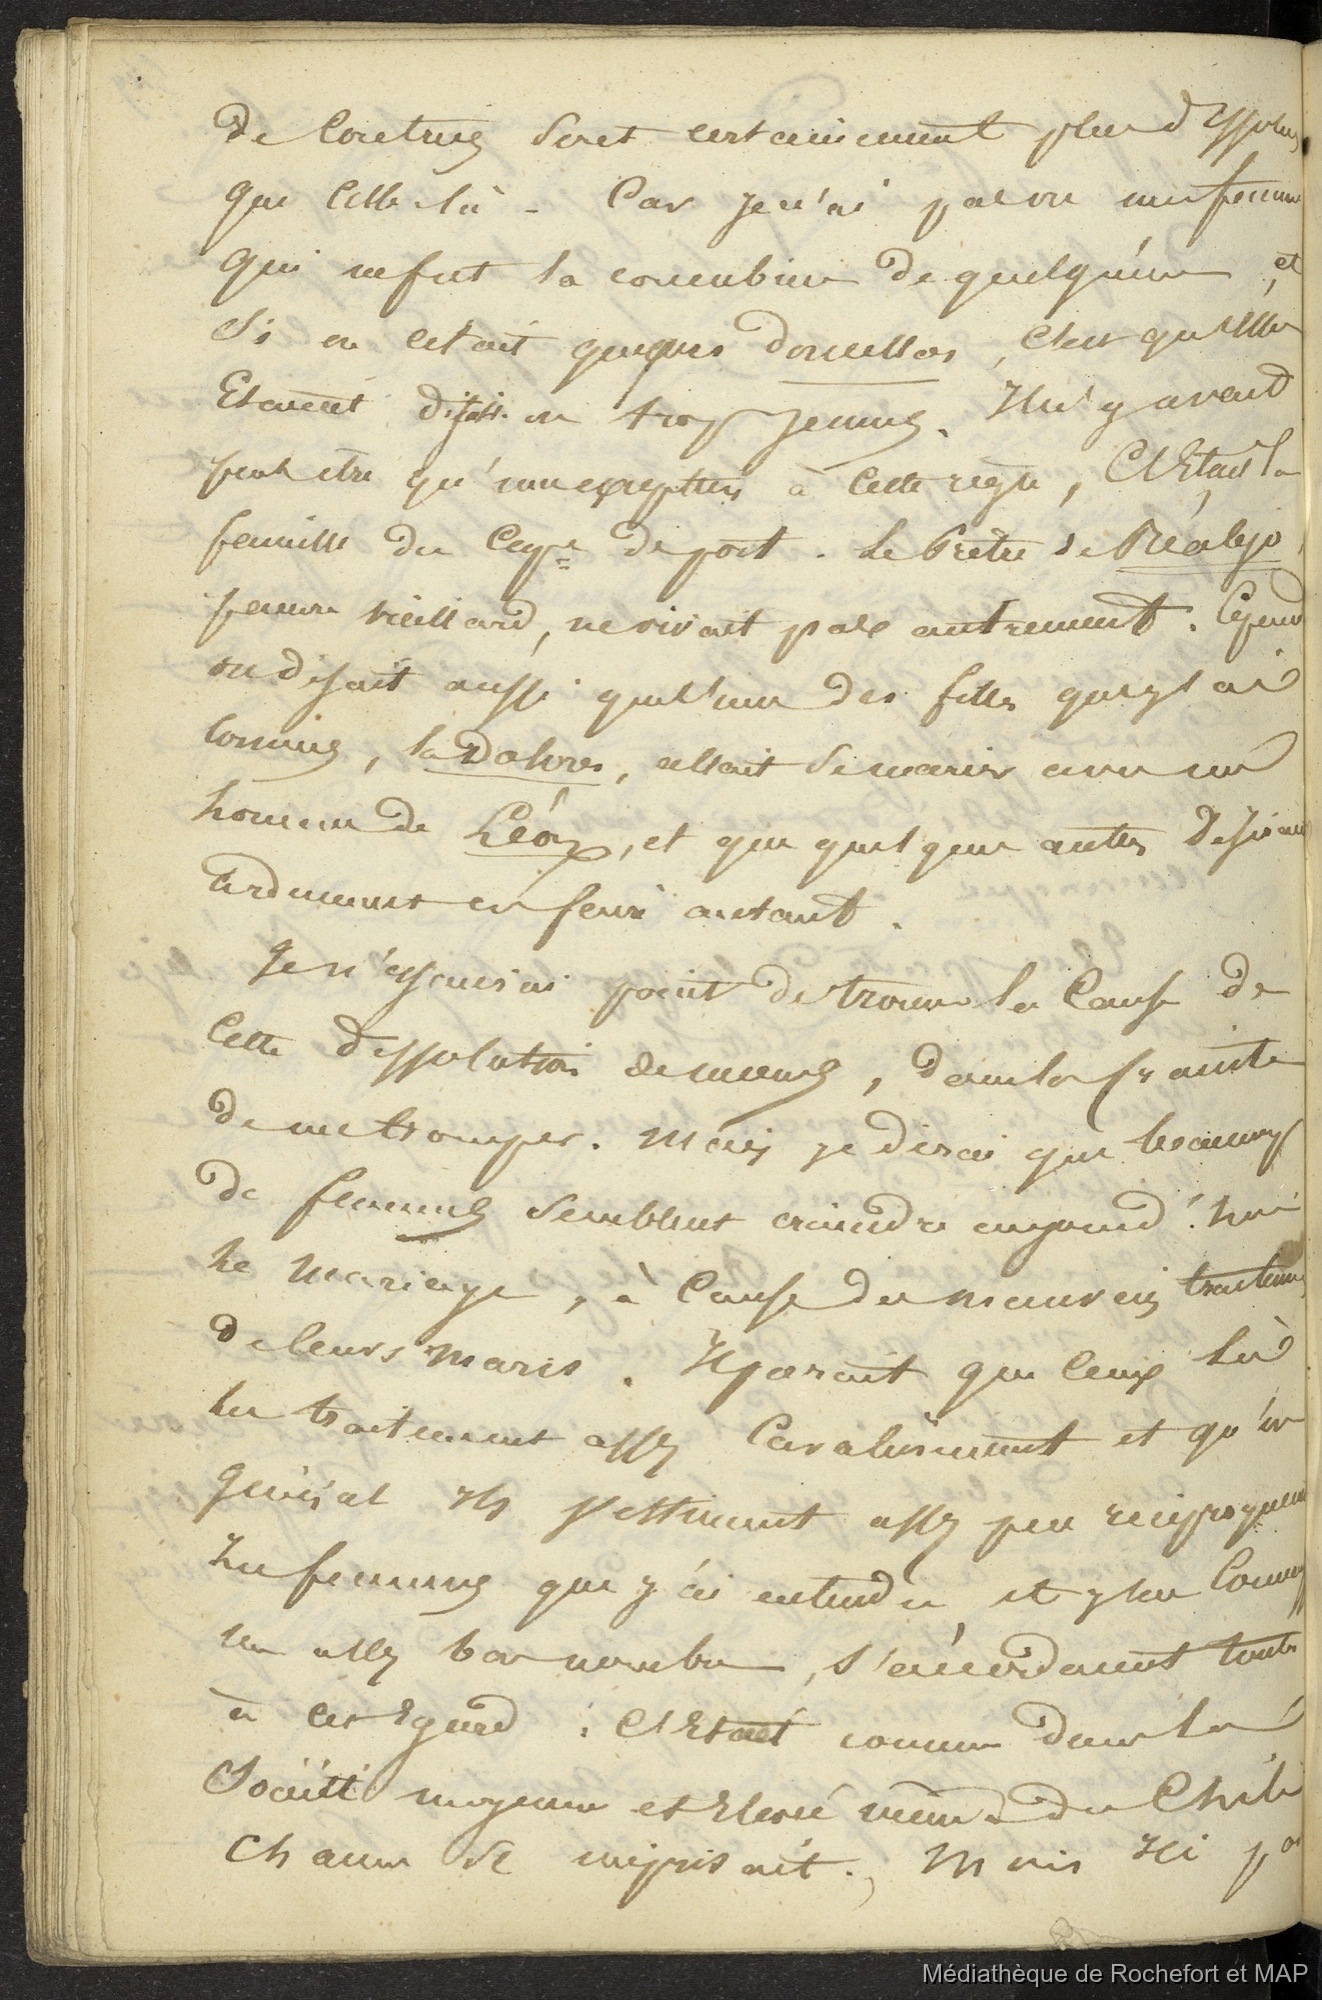 de Contrées soret certainement plus dissolues
que Celle-là - Car Je n'ai pas vu une femme
qui ne fut la concubine de quelqu'un, et
Si on citait quelques doncellas, C'est qu'Elles
Etaient ou trop Jeunes. Il n'y avait
peut etre qu'une exception à Cette regle, C'Etait la
famille du Cap.e de port. Le Prêtre de Réalejo,
pauvre vieillard, ne vivait pas autrement. Cepend
on disait aussi que l'une des filles que j'ai
Connues, la Dolores, allait se marier avec un
homme de Léon, et que quelques autres Desiraient
ardemment en faire autant.
Je n'essaierai point de trouver la Cause de
Cette dissolution de moeurs, dans la crainte
de me tromper. Mais je dirai que beaucoup
de femmes semblent craindre aujourd'hui
le Mariage, à Cause des mauvais traitemens
de leurs maris. Il parait que Ceux là
les traitement assez Cavalièrement et qu'en
général Ils s'estiment assez peu reciproquement
Les femmes que j'ai entendu, et j'en Connus
un assez bon nombre, s'accordaient toutes
à cet Egard : C'Etait comme dans la
Société moyenne et Elevée même du Chili
Chacun se méprisait. Mais Ici pa
Médiathèque de Rochefort et MAP